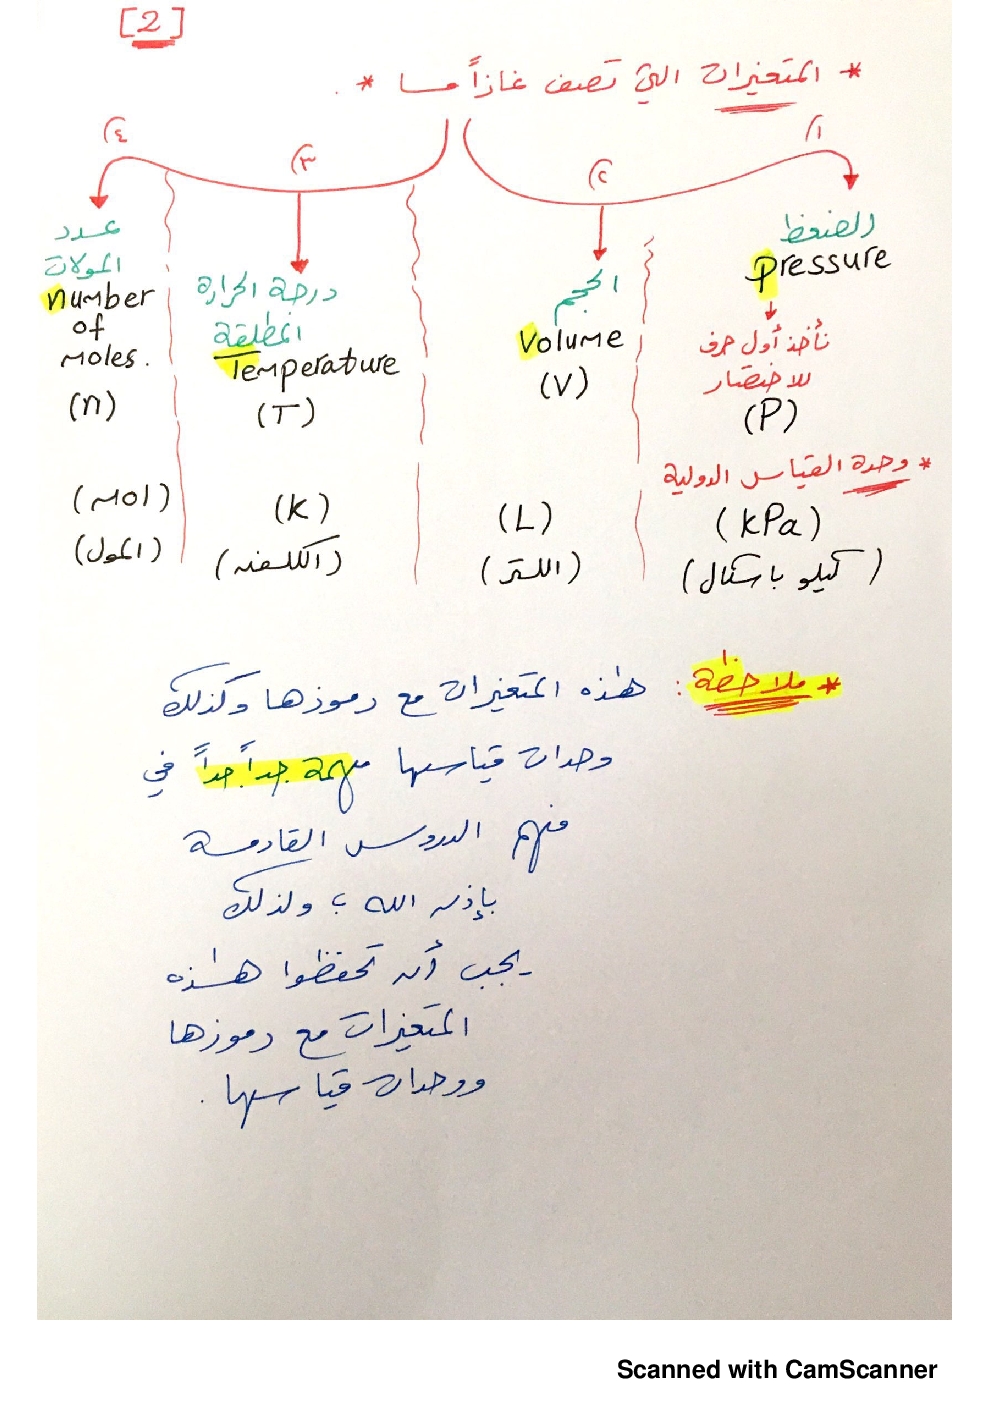 [2]
* المتغيرات التي تصف غازاً ما * .
١)
الضغط
Pressure
نأخذ أول حرف
للاختصار
(P)
* وحدة القياس الدولية
(kPa)
(كيلو باسكال)
٢)
الحجم
Volume
(V)
(L)
(اللتر)
٣)
درجة الحرارة
المطلقة
Temperature
(T)
(K)
(الكلفن)
٤)
عدد
المولات
number
of
moles.
(n)
(mol)
(المول)
* ملاحظة : هذه المتغيرات مع رموزها وكذلك
وحدات قياسها مهمة جداً جداً في
فهم الدروس القادمة
بإذن الله ؛ ولذلك
يجب أن تحفظوا هذه
المتغيرات مع رموزها
ووحدات قياسها .
Scanned with CamScanner